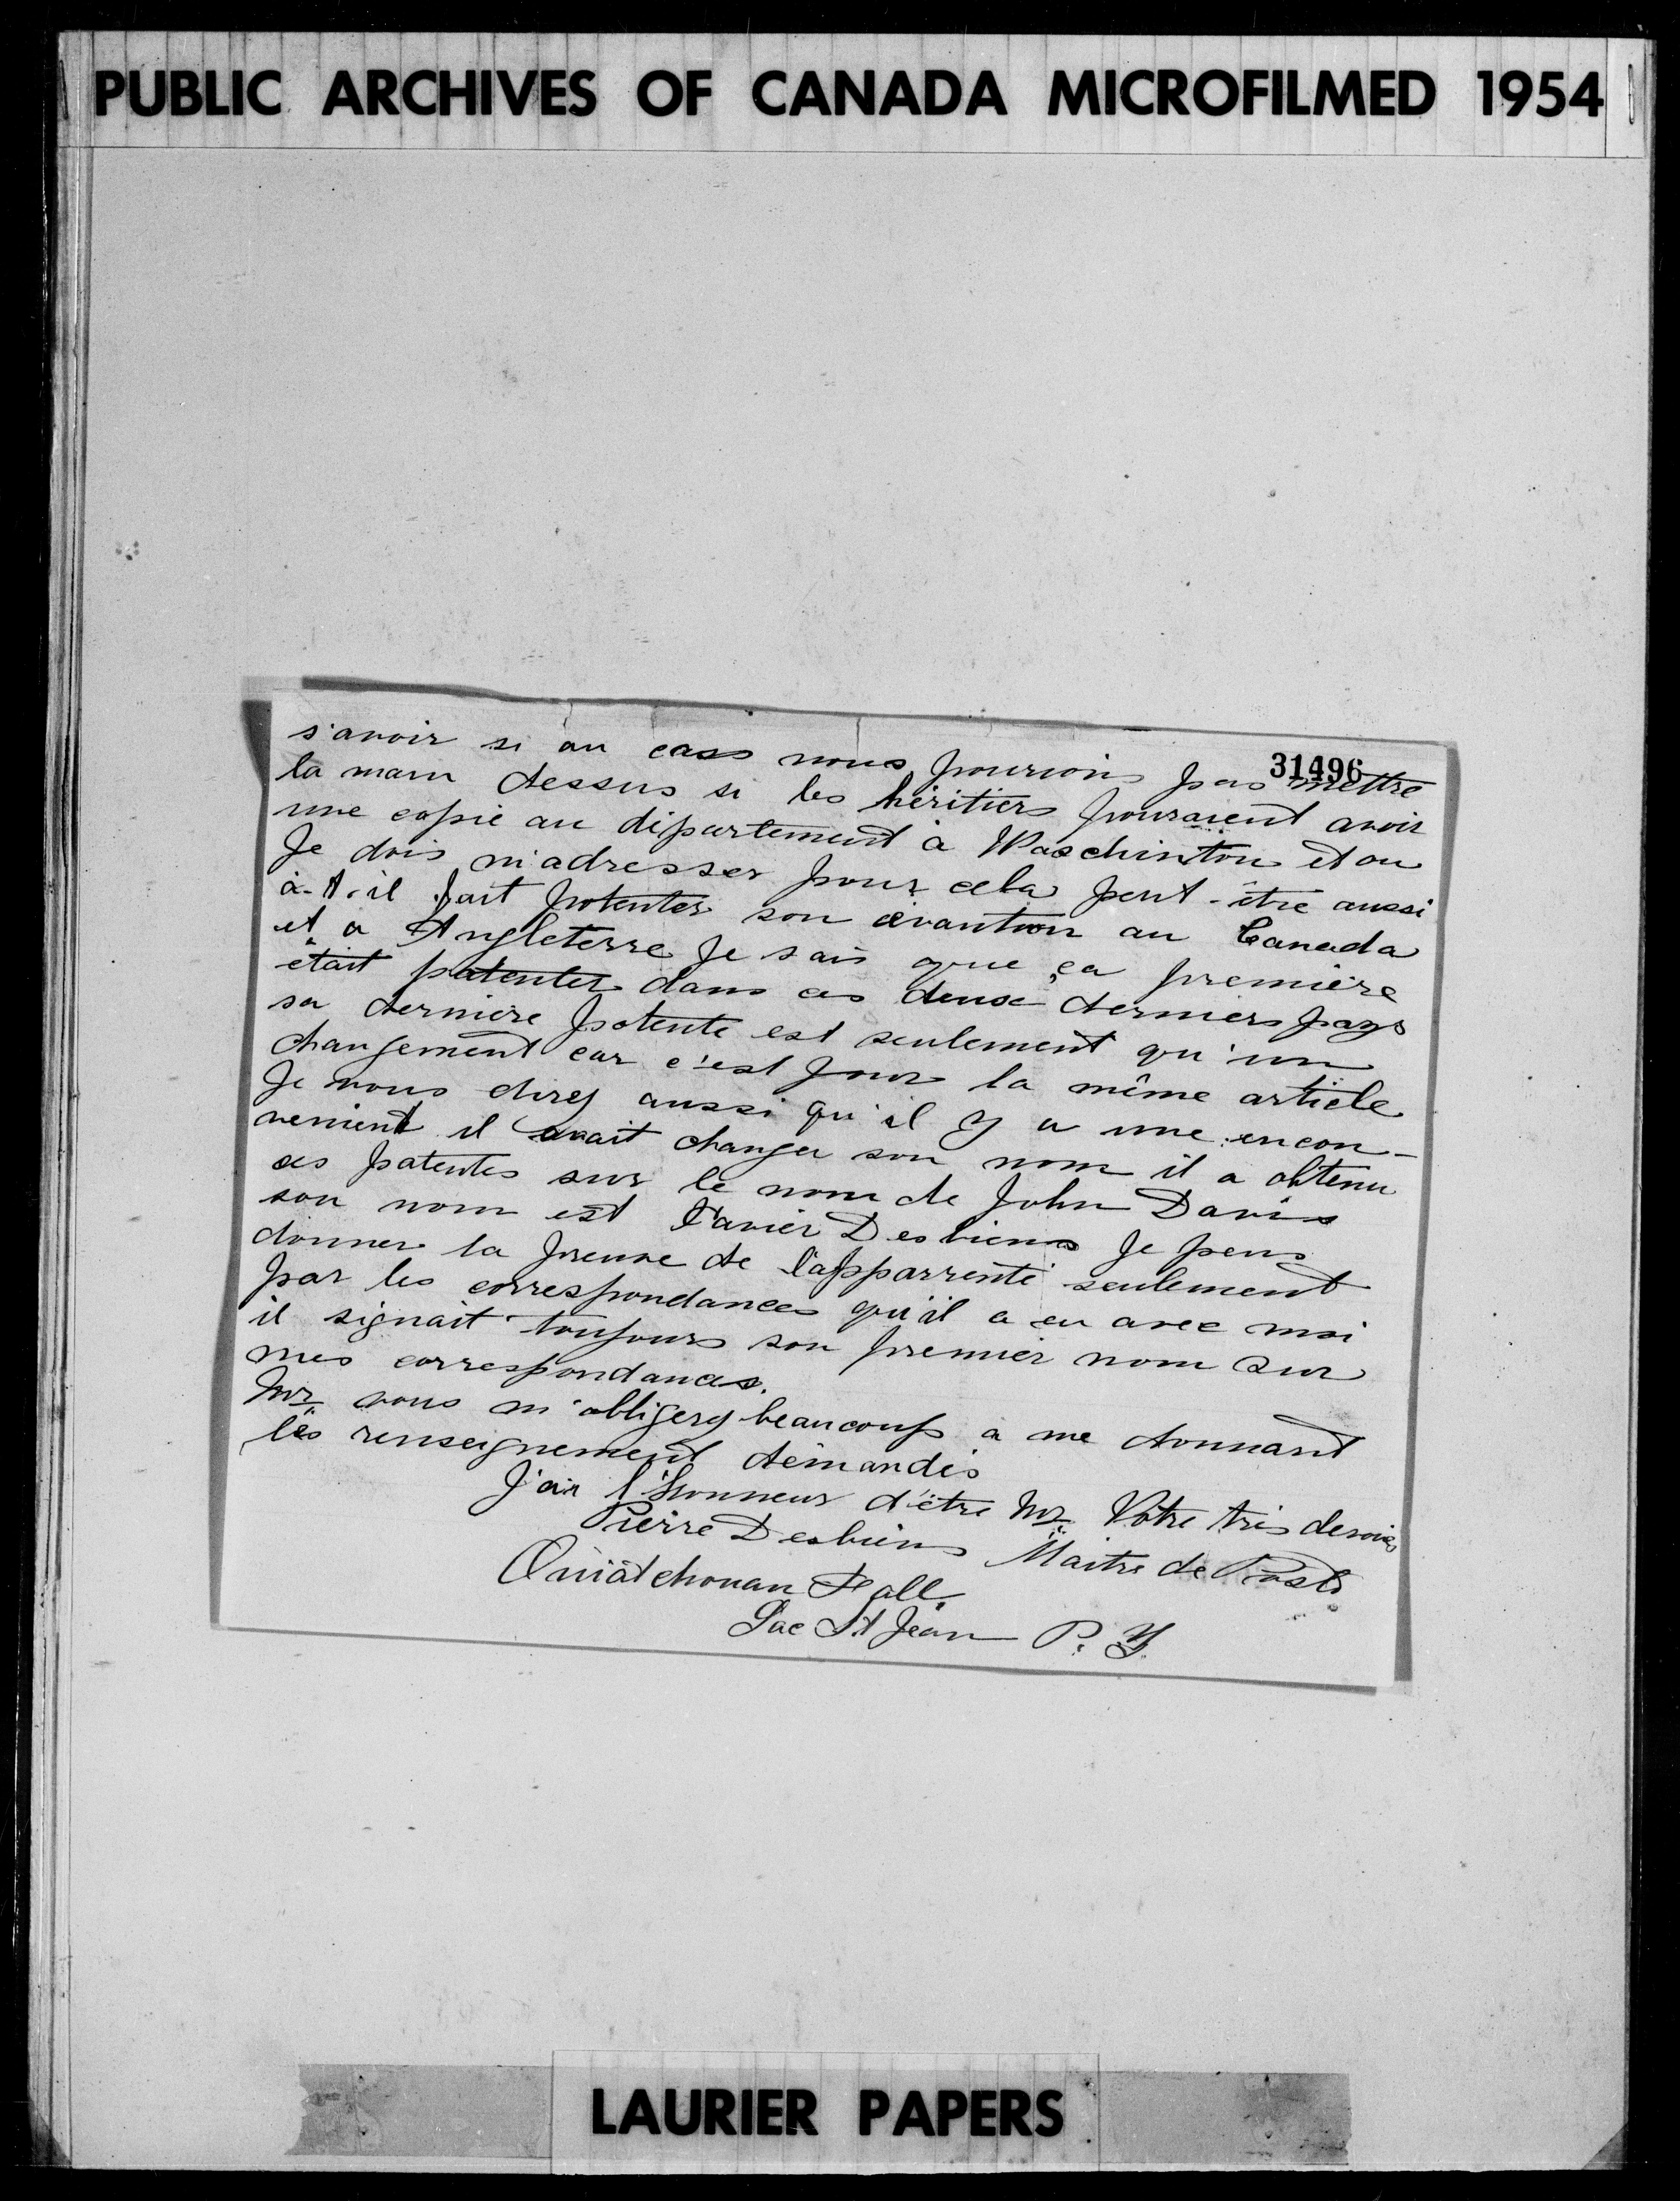 PUBLIC ARCHIVES OF CANADA MICROFILMED 1954
31496
s'avoir si au cass nous pourions pas mettre
la main dessus si les héritiers pouraient avoir
une copie au département à Waschinton et ou
Je dois m'adresser pour cela peut-être aussi
à-t-il fait patenter son évantion au Canada
et a Angleterre Je sais que ça première
était patenter dans ces deux derniers pays
sa dernière patente est seulement qu'un
changement car c'est pour la même article
Je vous direz aussi qu'il y a une encon-
venient il avait changer son nom il a obtenu
ses patentes sur le nom de John Davis
son nom est Xavier Desbiens Je peus
donner la preuve de l'apparrenté seulement
par les correspondances qu'il a eu avec moi
il signait toujours son premier nom sur
mes correspondances.
Mr vous m'obligerez beaucoup a me donnant
les renseignement demandés
J'ai l'Honneur d'être Mr Votre très devoué
Pierre Desbiens Maitre de Poste
Ouiatchouan Fall,
Lac St Jean P. Q.
LAURIER PAPERS